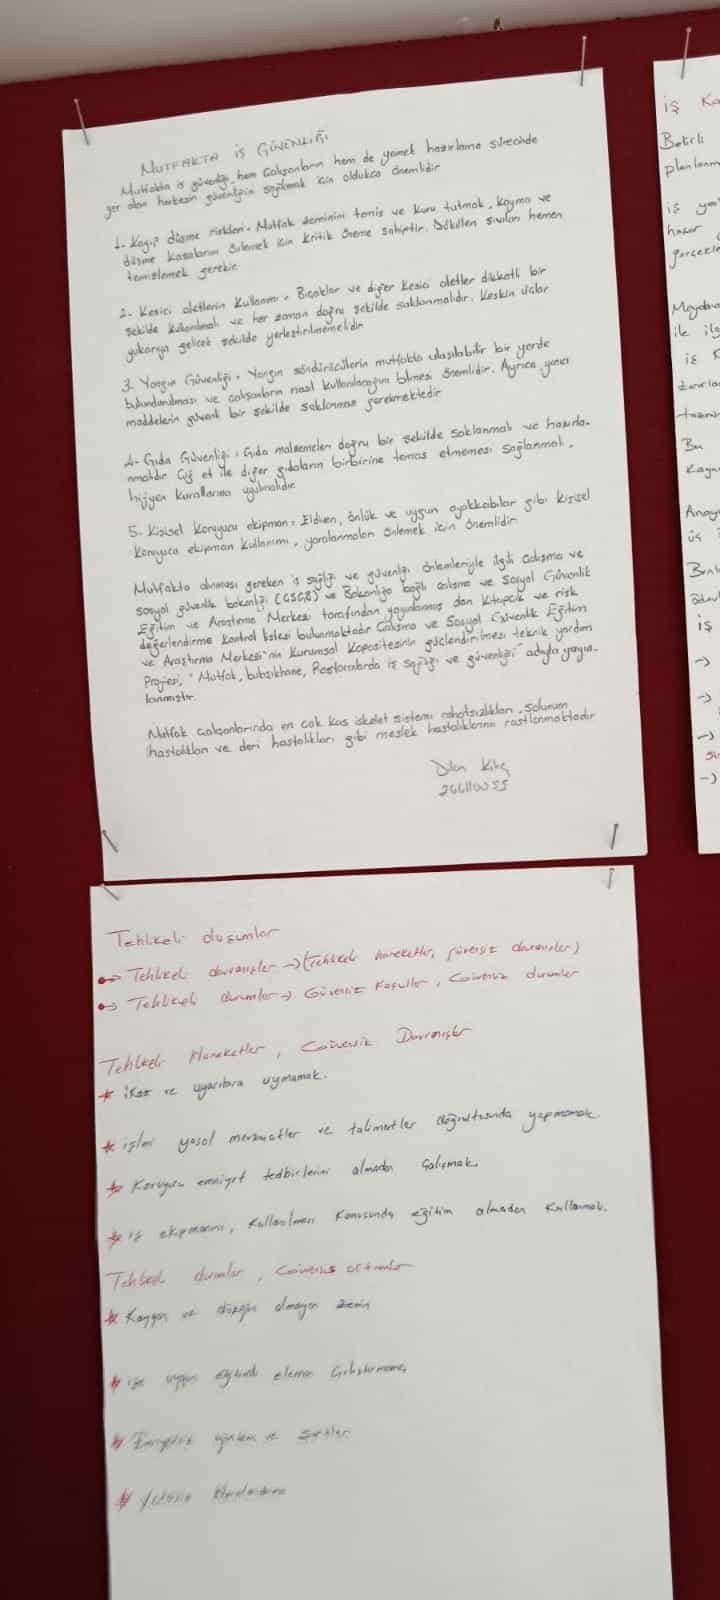 MUTFAKTA İŞ GÜVENLİĞİ
Mutfakta iş güvenliği, hem çalışanların hem de yemek hazırlama sürecinde
yer alan herkesin güvenliğini sağlamak için oldukça önemlidir
1- Kayıp düşme riskleri: Mutfak zeminini temiz ve kuru tutmak, kayma ve
düşme kazalarını önlemek için kritik öneme sahiptir. Dökülen sıvıları hemen
temizlemek gerekir
2- Kesici aletlerin kullanımı: Bıçaklar ve diğer kesici aletler dikkatli bir
şekilde kullanılmalı ve her zaman doğru şekilde saklanmalıdır. Keskin uçlar
yukarıya gelicek şekilde yerleştirilmemelidir
3. Yangın Güvenliği: Yangın söndürücülerin mutfakta ulaşılabilir bir yerde
bulundurulması ve çalışanların nasıl kullanılacağını bilmesi önemlidir. Ayrıca, yanıcı
maddelerin güvenli bir şekilde saklanması gerekmektedir
4- Gıda Güvenliği: Gıda malzemeleri doğru bir şekilde saklanmalı ve hazırla-
nmalıdır Çiğ et ile diğer gıdaların birbirine temas etmemesi sağlanmalı,
hijyen kurallarına uyulmalıdır
5- Kişisel Koruyucu ekipman: Eldiven, önlük ve uygun ayakkabılar gibi kişisel
koruyucu ekipman kullanımı, yaralanmaları önlemek için önemlidir
Mutfakta alınması gereken iş sağlığı ve güvenliği önlemleriyle ilgili çalışma ve
sosyal güvenlik bakanlığı (ÇSGB) ve Bakanlığa bağlı çalışma ve Sosyal Güvenlik
Eğitim ve Araştırma Merkezi tarafından yayınlanmış olan kitapçık ve risk
değerlendirme kontrol listesi bulunmaktadır Çalışma ve Sosyal Güvenlik Eğitim
ve Araştırma Merkezi'nin Kurumsal Kapasitesinin güçlendirilmesi teknik yardım
Projesi, "Mutfak, bulaşıkhane, Restoranlarda iş sağlığı ve güvenliği" adıyla yayın-
lanmıştır.
Mutfak çalışanlarında en çok kas iskelet sistemi rahatsızlıkları, solunum
hastalıkları ve deri hastalıkları gibi meslek hastalıklarına rastlanmaktadır
Tehlikeli
Tehlikeli davranışlar → (Tehlikeli hareketler, güvensiz davranışlar)
Tehlikeli durumlar → Güvensiz Koşullar, Güvensiz durumlar
Tehlikeli Hareketler, Güvensiz Davranışlar
* İkaz ve uyarılara uymamak.
* işleri yasal mevzuatler ve talimatler doğrultusunda yapmamak.
* Koruyucu emniyet tedbirlerini almadan çalışmak.
* iş ekipmanını, kullanılması konusunda eğitim almadan kullanmak.
Tehlikeli durumlar, Güvensiz ortamlar
* Kaygan ve düzgün olmayan zemin
* işe uygun eğitimli eleman çalıştırmama
*
*
iş
Belirli
planlanm
iş
hasar
gerçekle
ile
iş
Bu
iş
→
→
→
→